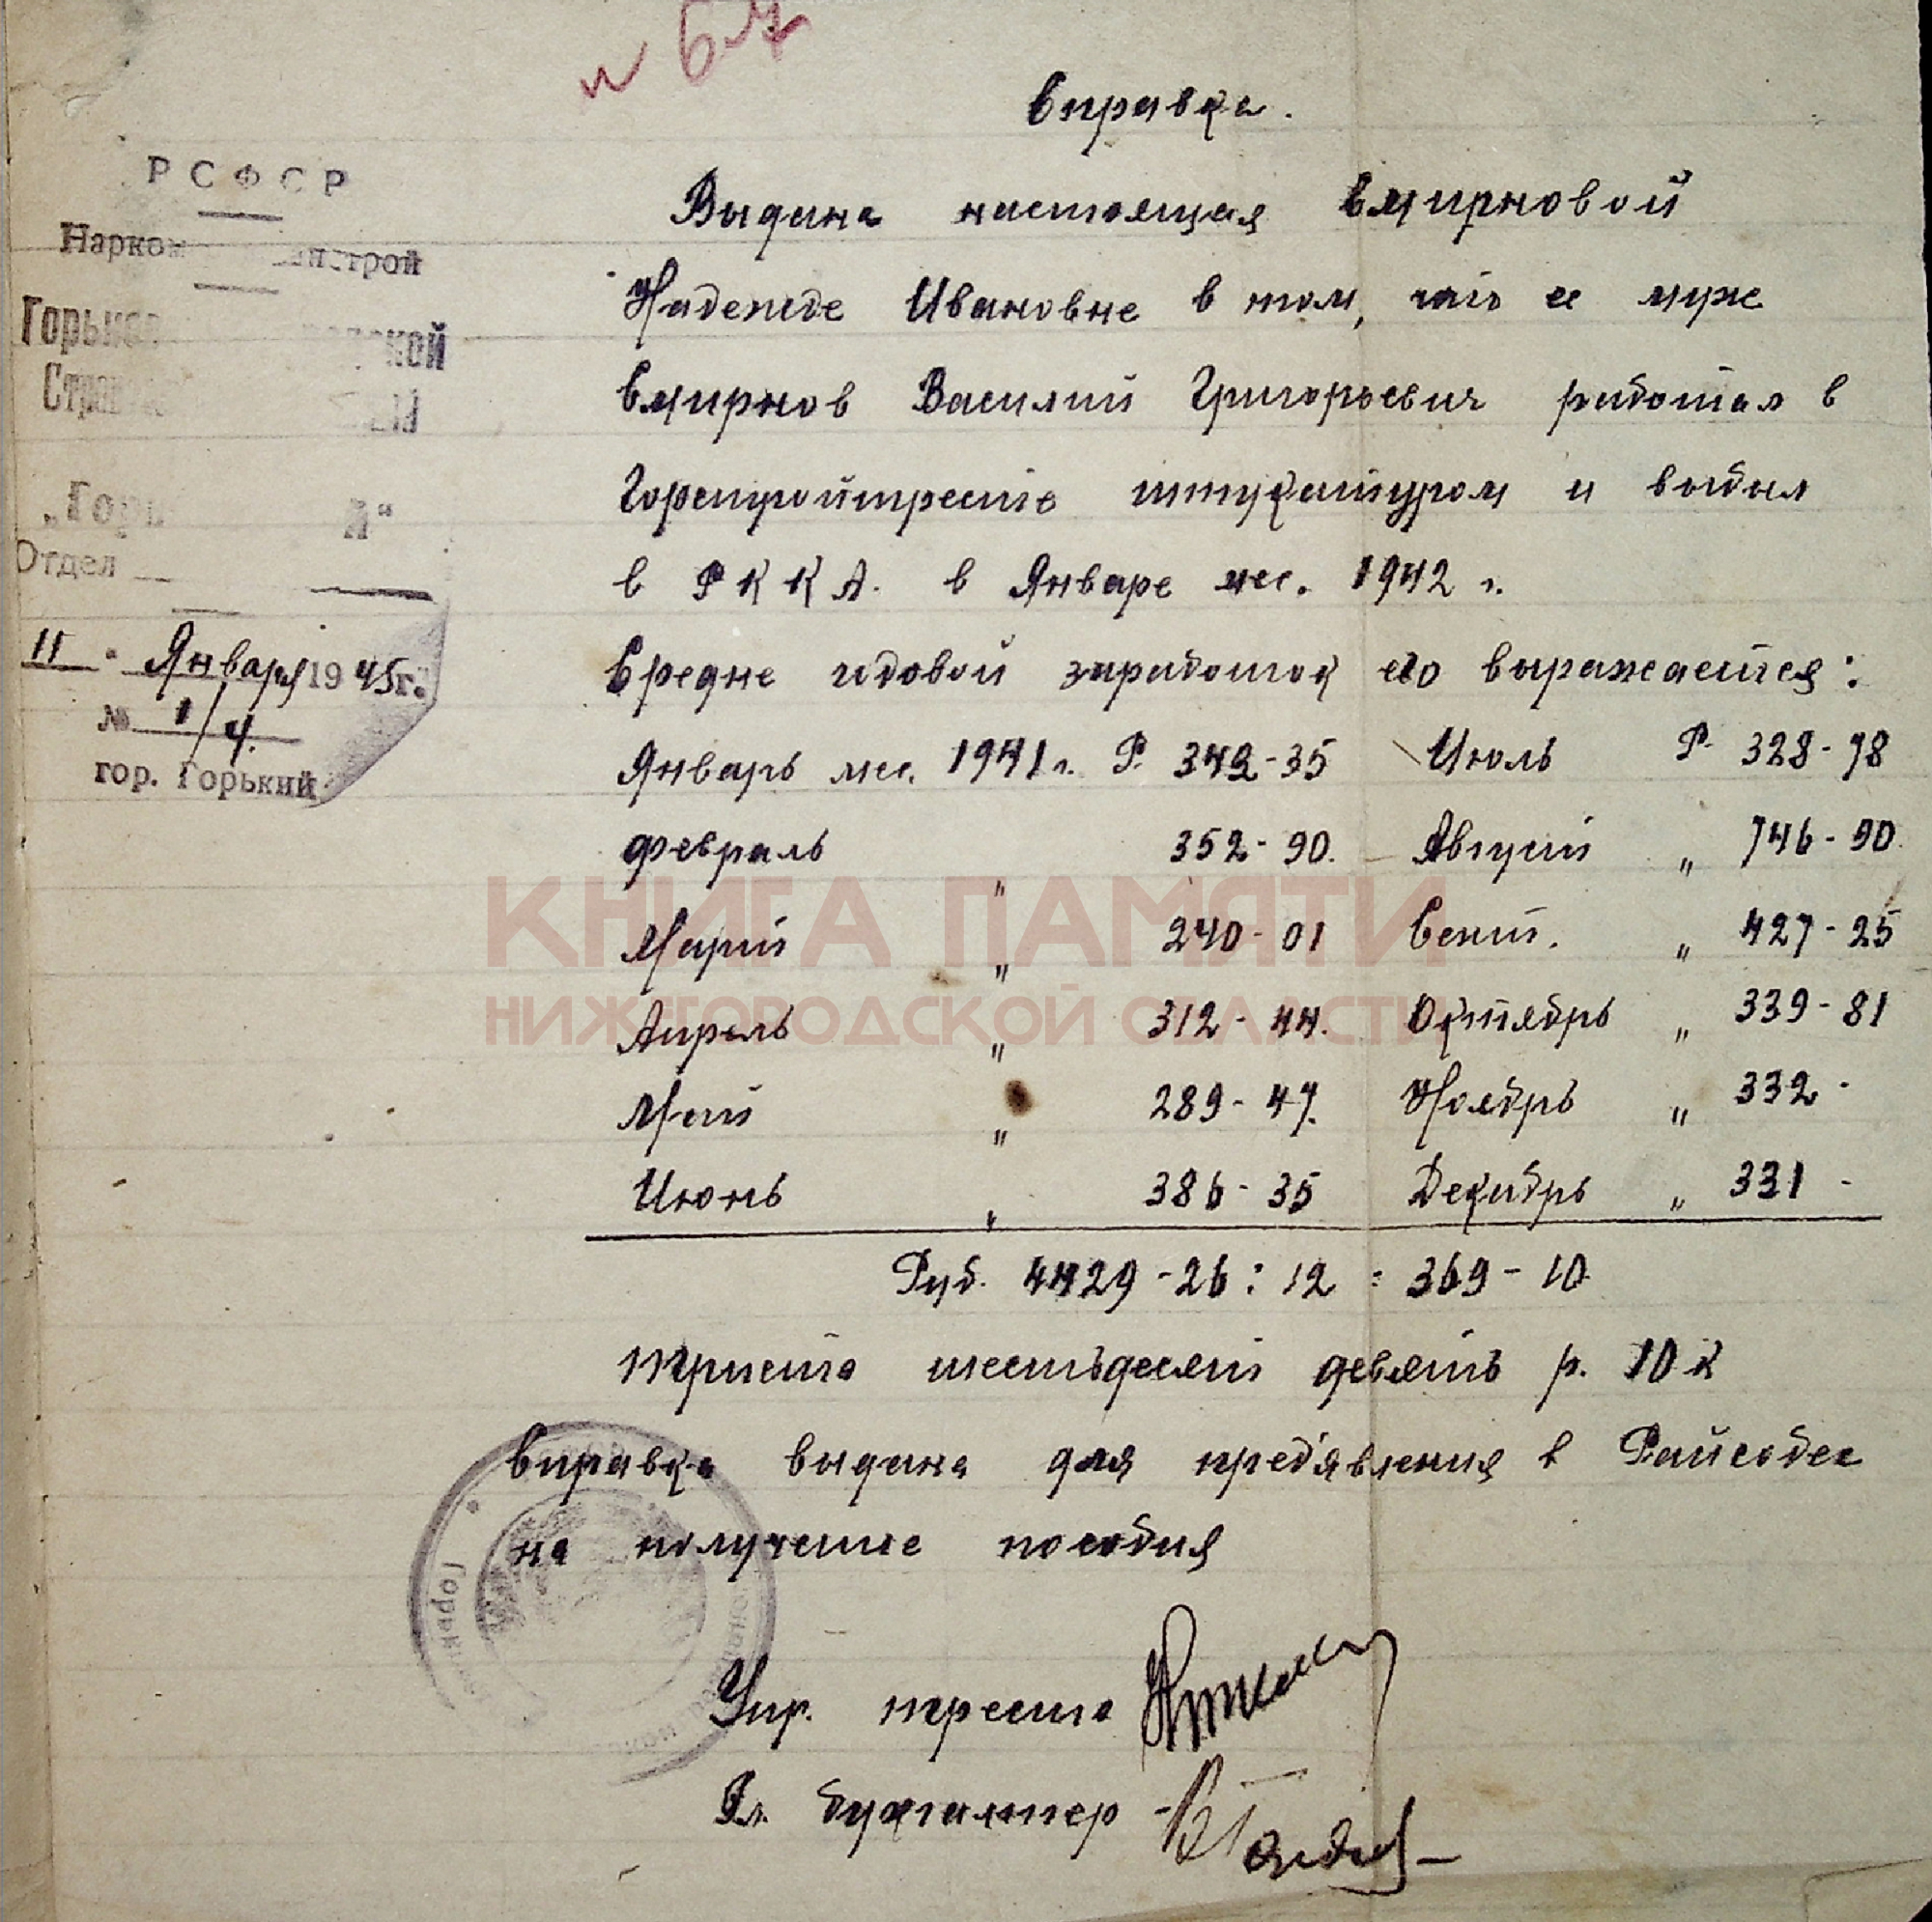 № 67
Справка.
РСФСР
Выдана настоящая Смирновой
Нарком нстрой
Надежде Ивановне в том, что ее муж
Горьков родской
Смирнов Василий Григорьевич работал в
Строит
Горстройтресте штукатуром и выбыл
„Горь А“
Отдел
в РККА. в Январе мес. 1942 г.
11 " Января 1945 г.
№ 1/4.
гор. Горький
Средне годовой заработок его выражается:
Январь мес. 1941 г. Р. 342-35 Июль Р. 328-78
Февраль " 352-90. Август " 746-90.
Март " 240-01 Сент. " 427-25
Апрель " 312-44. Октябрь " 339-81
Май " 289-47. Ноябрь " 332-
Июнь " 386-35 Декабрь " 331-
Руб. 4429-26 : 12 = 369-10
триста шестьдесят девять р. 10 к
Справка выдана для пред'явления в Райсобес
на получение пособия
Упр. треста
Гл. бухгалтер
КНИГА ПАМЯТИ
НИЖЕГОРОДСКОЙ ОБЛАСТИ